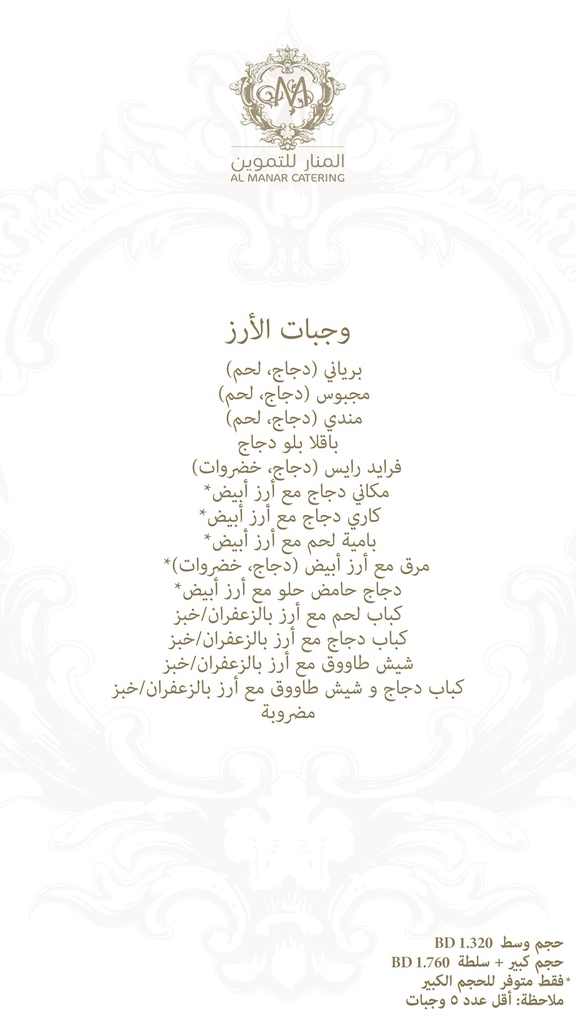 المنار للتموين
AL MANAR CATERING
وجبات الأرز
برياني (دجاج، لحم)
مجبوس (دجاج، لحم)
مندي (دجاج، لحم)
باقلا بلو دجاج
فرايد رايس (دجاج، خضروات)
مكاني دجاج مع أرز أبيض*
كاري دجاج مع أرز أبيض*
بامية لحم مع أرز أبيض*
مرق مع أرز أبيض (دجاج، خضروات)*
دجاج حامض حلو مع أرز أبيض*
كباب لحم مع أرز بالزعفران/خبز
كباب دجاج مع أرز بالزعفران/خبز
شيش طاووق مع أرز بالزعفران/خبز
كباب دجاج و شيش طاووق مع أرز بالزعفران/خبز
مضروبة
حجم وسط BD 1.320
حجم كبير + سلطة BD 1.760
*فقط متوفر للحجم الكبير
ملاحظة: أقل عدد ٥ وجبات